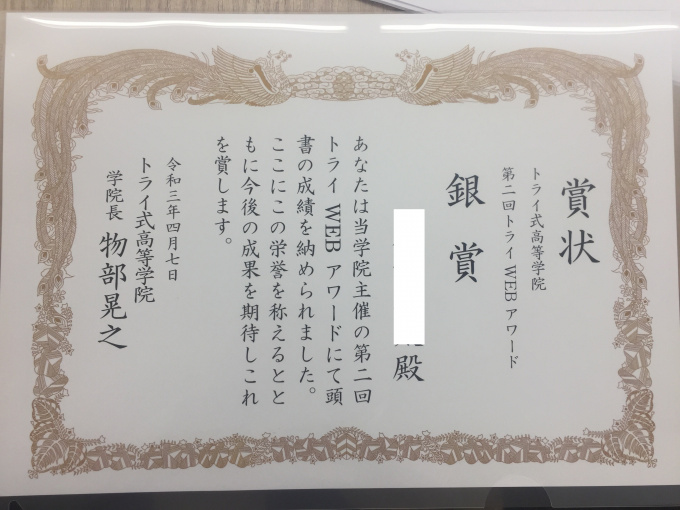 賞状
トライ式高等学院
第二回トライ WEB アワード
銀賞
殿
あなたは当学院主催の第二回
トライ WEB アワードにて頭
書の成績を納められました。
ここにこの栄誉を称えるとと
もに今後の成果を期待しこれ
を賞します。
令和三年四月七日
トライ式高等学院
学院長 物部晃之